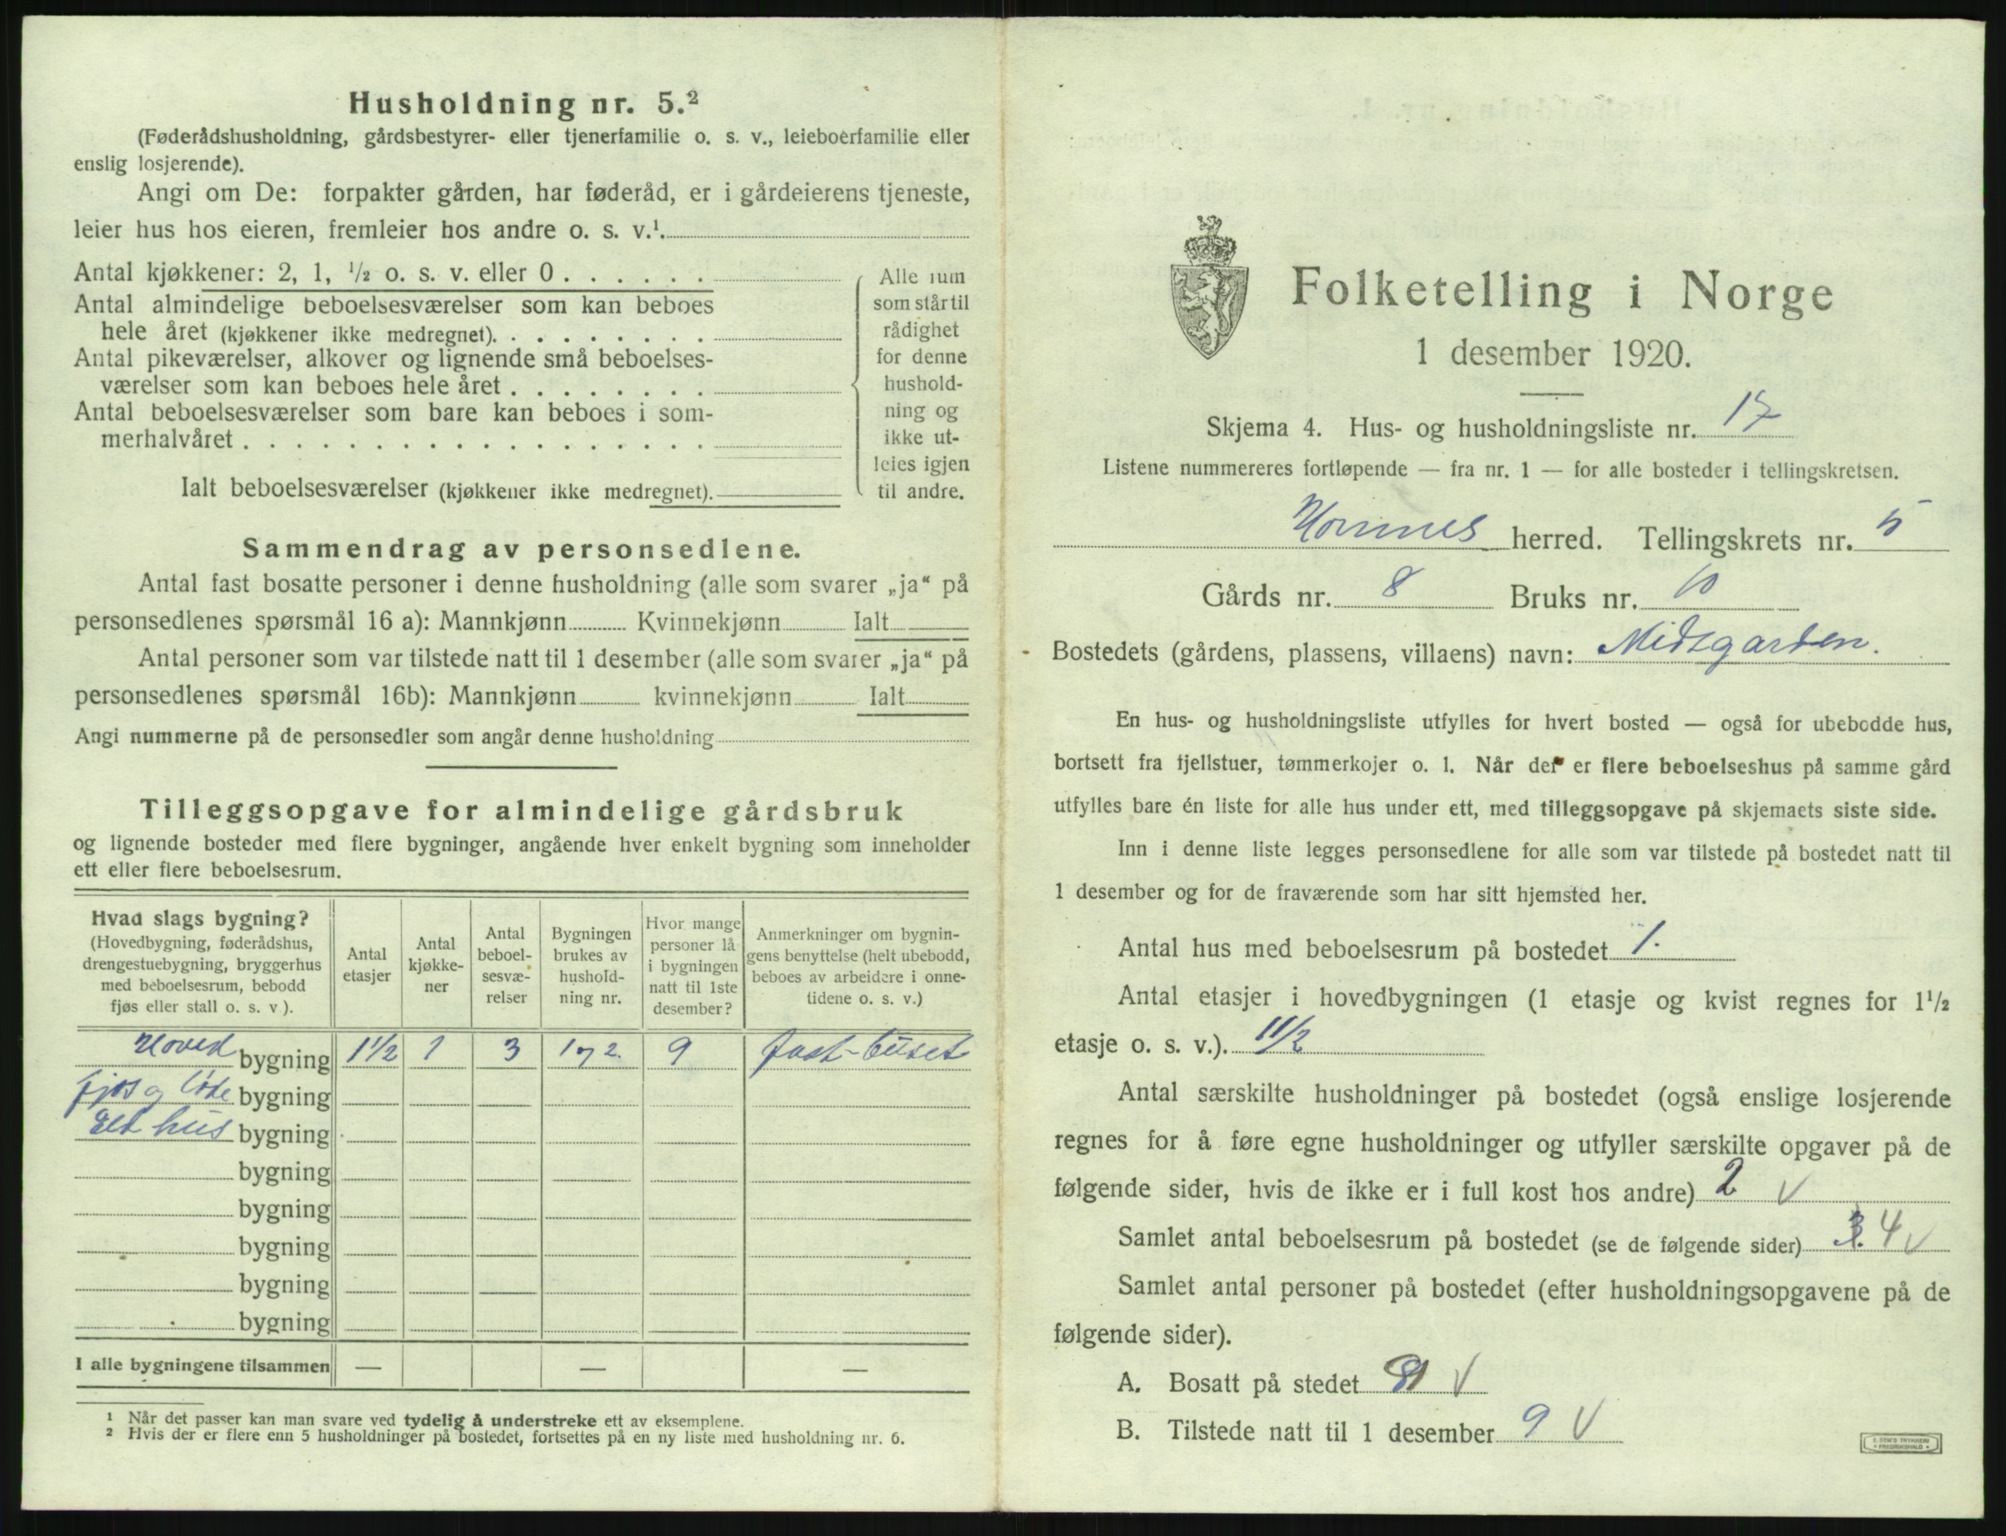 Husholdning nr. 5.²
(Føderådshusholdning, gårdsbestyrer- eller tjenerfamilie o. s. v., leieboerfamilie eller
enslig losjerende).
Angi om De: forpakter gården, har føderåd, er i gårdeierens tjeneste,
leier hus hos eieren, fremleier hos andre o. s. v.¹.
Antal kjøkkener: 2, 1, ½ o. s. v. eller 0 . . . . . .
Antal almindelige beboelsesværelser som kan beboes
hele året (kjøkkener ikke medregnet). . . . . . . . .
Antal pikeværelser, alkover og lignende små beboelses-
værelser som kan beboes hele året . . . . . . . .
Antal beboelsesværelser som bare kan beboes i som-
merhalvåret . . . . . . . . . . . . . . . . . .
Ialt beboelsesværelser (kjøkkener ikke medregnet).
Alle rum
som står til
rådighet
for denne
hushold-
ning og
ikke ut-
leies igjen
til andre.
Sammendrag av personsedlene.
Antal fast bosatte personer i denne husholdning (alle som svarer „ja“ på
personsedlenes spørsmål 16 a): Mannkjønn Kvinnekjønn Ialt
Antal personer som var tilstede natt til 1 desember (alle som svarer „ja“ på
personsedlenes spørsmål 16b): Mannkjønn kvinnekjønn Ialt
Angi nummerne på de personsedler som angår denne husholdning
Tilleggsopgave for almindelige gårdsbruk
og lignende bosteder med flere bygninger, angående hver enkelt bygning som inneholder
ett eller flere beboelsesrum.
Hvad slags bygning?
(Hovedbygning, føderådshus,
drengestuebygning, bryggerhus
med beboelsesrum, bebodd
fjøs eller stall o. s. v ).
Antal
etasjer
Antal
kjøkke-
ner
Antal
beboel-
sesvæ-
relser
Bygningen
brukes av
hushold-
ning nr.
Hvor mange
personer lå
i bygningen
natt til 1ste
desember?
Anmerkninger om bygnin-
gens benyttelse (helt ubebodd,
beboes av arbeidere i onne-
tidene o. s. v.)
Hoved bygning 1½ 1 3 1 og 2. 9 fast-buset
fjøs og løde bygning
Eld hus bygning
bygning
bygning
bygning
bygning
bygning
I alle bygningene tilsammen — — —
¹ Når det passer kan man svare ved tydelig å understreke ett av eksemplene.
² Hvis der er flere enn 5 husholdninger på bostedet, fortsettes på en ny liste med husholdning nr. 6.
Folketelling i Norge
1 desember 1920.
Skjema 4. Hus- og husholdningsliste nr. 17
Listene nummereres fortløpende — fra nr. 1 — for alle bosteder i tellingskretsen.
herred. Tellingskrets nr. 5
Gårds nr. 8 Bruks nr. 10
Bostedets (gårdens, plassens, villaens) navn: Midsgarden.
En hus- og husholdningsliste utfylles for hvert bosted — også for ubebodde hus,
bortsett fra fjellstuer, tømmerkojer o. l. Når der er flere beboelseshus på samme gård
utfylles bare én liste for alle hus under ett, med tilleggsopgave på skjemaets siste side.
Inn i denne liste legges personsedlene for alle som var tilstede på bostedet natt til
1 desember og for de fraværende som har sitt hjemsted her.
Antal hus med beboelsesrum på bostedet 1.
Antal etasjer i hovedbygningen (1 etasje og kvist regnes for 1½
etasje o. s. v.). 1½
Antal særskilte husholdninger på bostedet (også enslige losjerende
regnes for å føre egne husholdninger og utfyller særskilte opgaver på de
følgende sider, hvis de ikke er i full kost hos andre) 2 v
Samlet antal beboelsesrum på bostedet (se de følgende sider) 3. 4 v
Samlet antal personer på bostedet (efter husholdningsopgavene på de
følgende sider).
A. Bosatt på stedet v
B. Tilstede natt til 1 desember 9 v